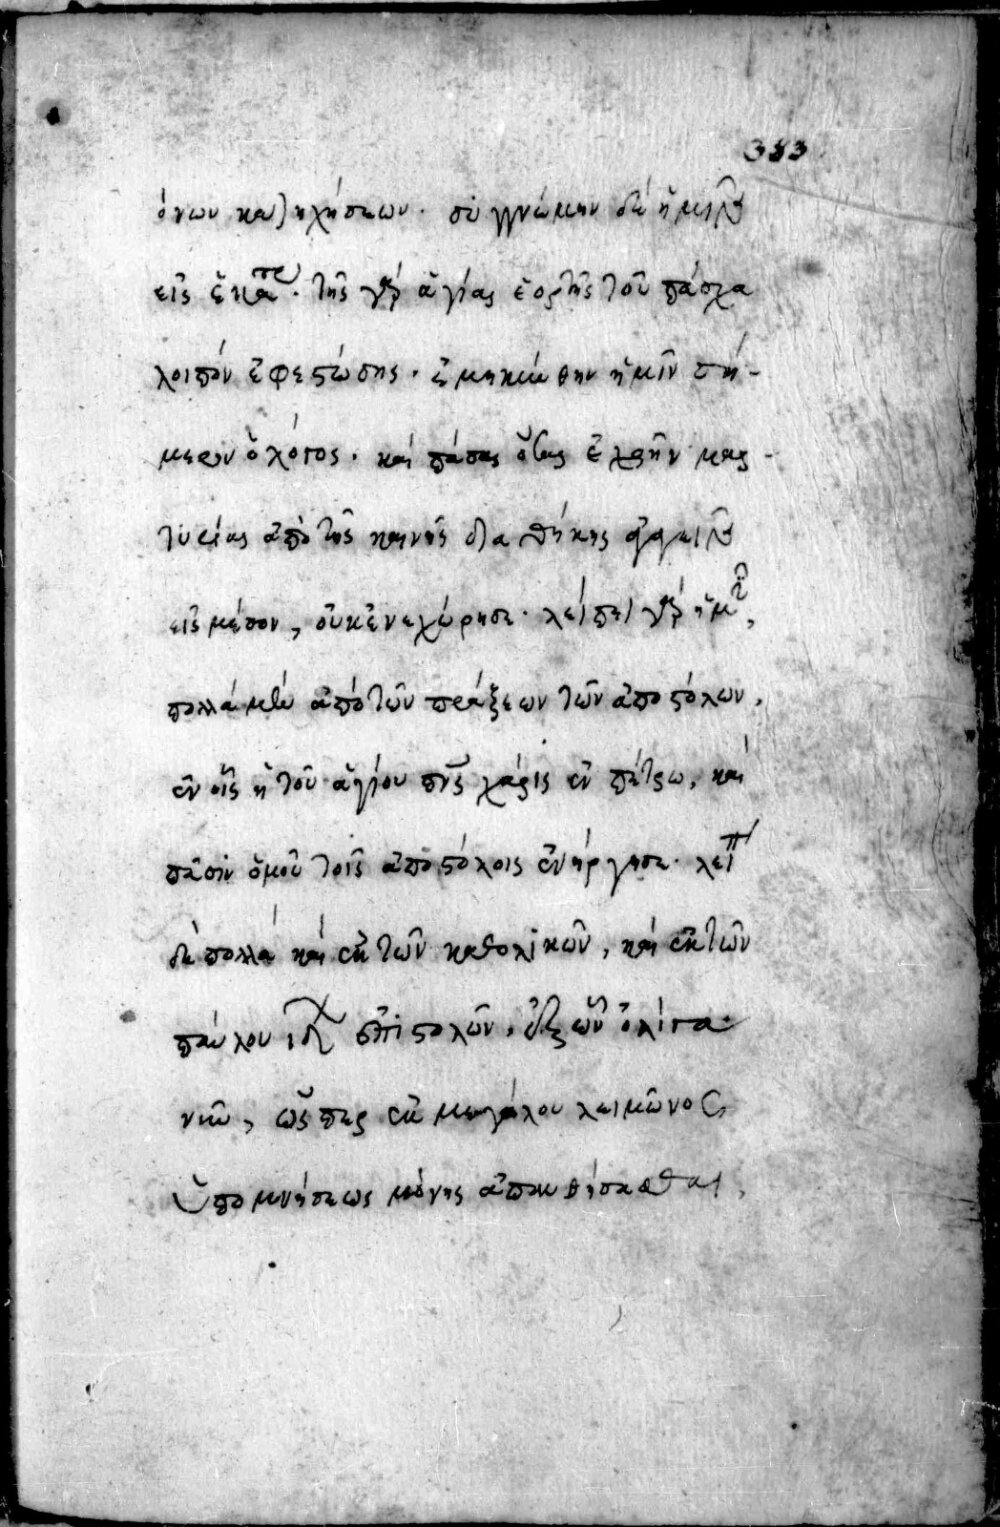 όνων κατηχήσεων. συγγνώμην δὲ ἡμεῖς
τῆς γὰρ ἁγίας ἑορτῆς τοῦ πάσχα
λοιπὸν ἐφεστώσης. ἐμηκύνθην ἡμῖν σή-
μερον ὁ λόγος. καὶ πάσας ὅσας ἐχρῆν μαρ-
τυρίας ἀπὸ τῆς καινῆς διαθήκης
εἰς μέσον, οὐκ ἐνεχώρησε. λείπει γὰρ ἡμῖν,
πολλὰ μὲν ἀπὸ τῶν πράξεων τῶν ἀποστόλων,
ἐν οἷς ἡ τοῦ ἁγίου πνς χάρις ἐν πέτρω, καὶ
πᾶσιν ὁμοῦ τοῖς ἀποστόλοις ἐνήργησε. λείπ
δὲ πολλὰ καὶ ἐκ τῶν καθολικῶν, καὶ ἐκ τῶν
παύλου ιδ ἐπιστολῶν. ἐξ ὧν ὀλίγα
νῦν, ὥσπερ ἐκ μεγάλου λειμῶνος,
ὑπομνήσεως μόνης ἀπανθήσασθαι.